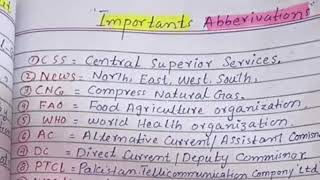 "Importants Abberivations"
① CSS = Central Superior Services.
② News = North, East, West, South,
③ CNG = Compress Natural Gas.
④ FAO = Food Agriculture organization,
⑤ WHO = World Health organization.
⑥ AC = Alternative Current/Assistant
⑦ DC = Direct Current/Deputy
⑧ PTCL = Pakistan Telecommunication Company Ltd